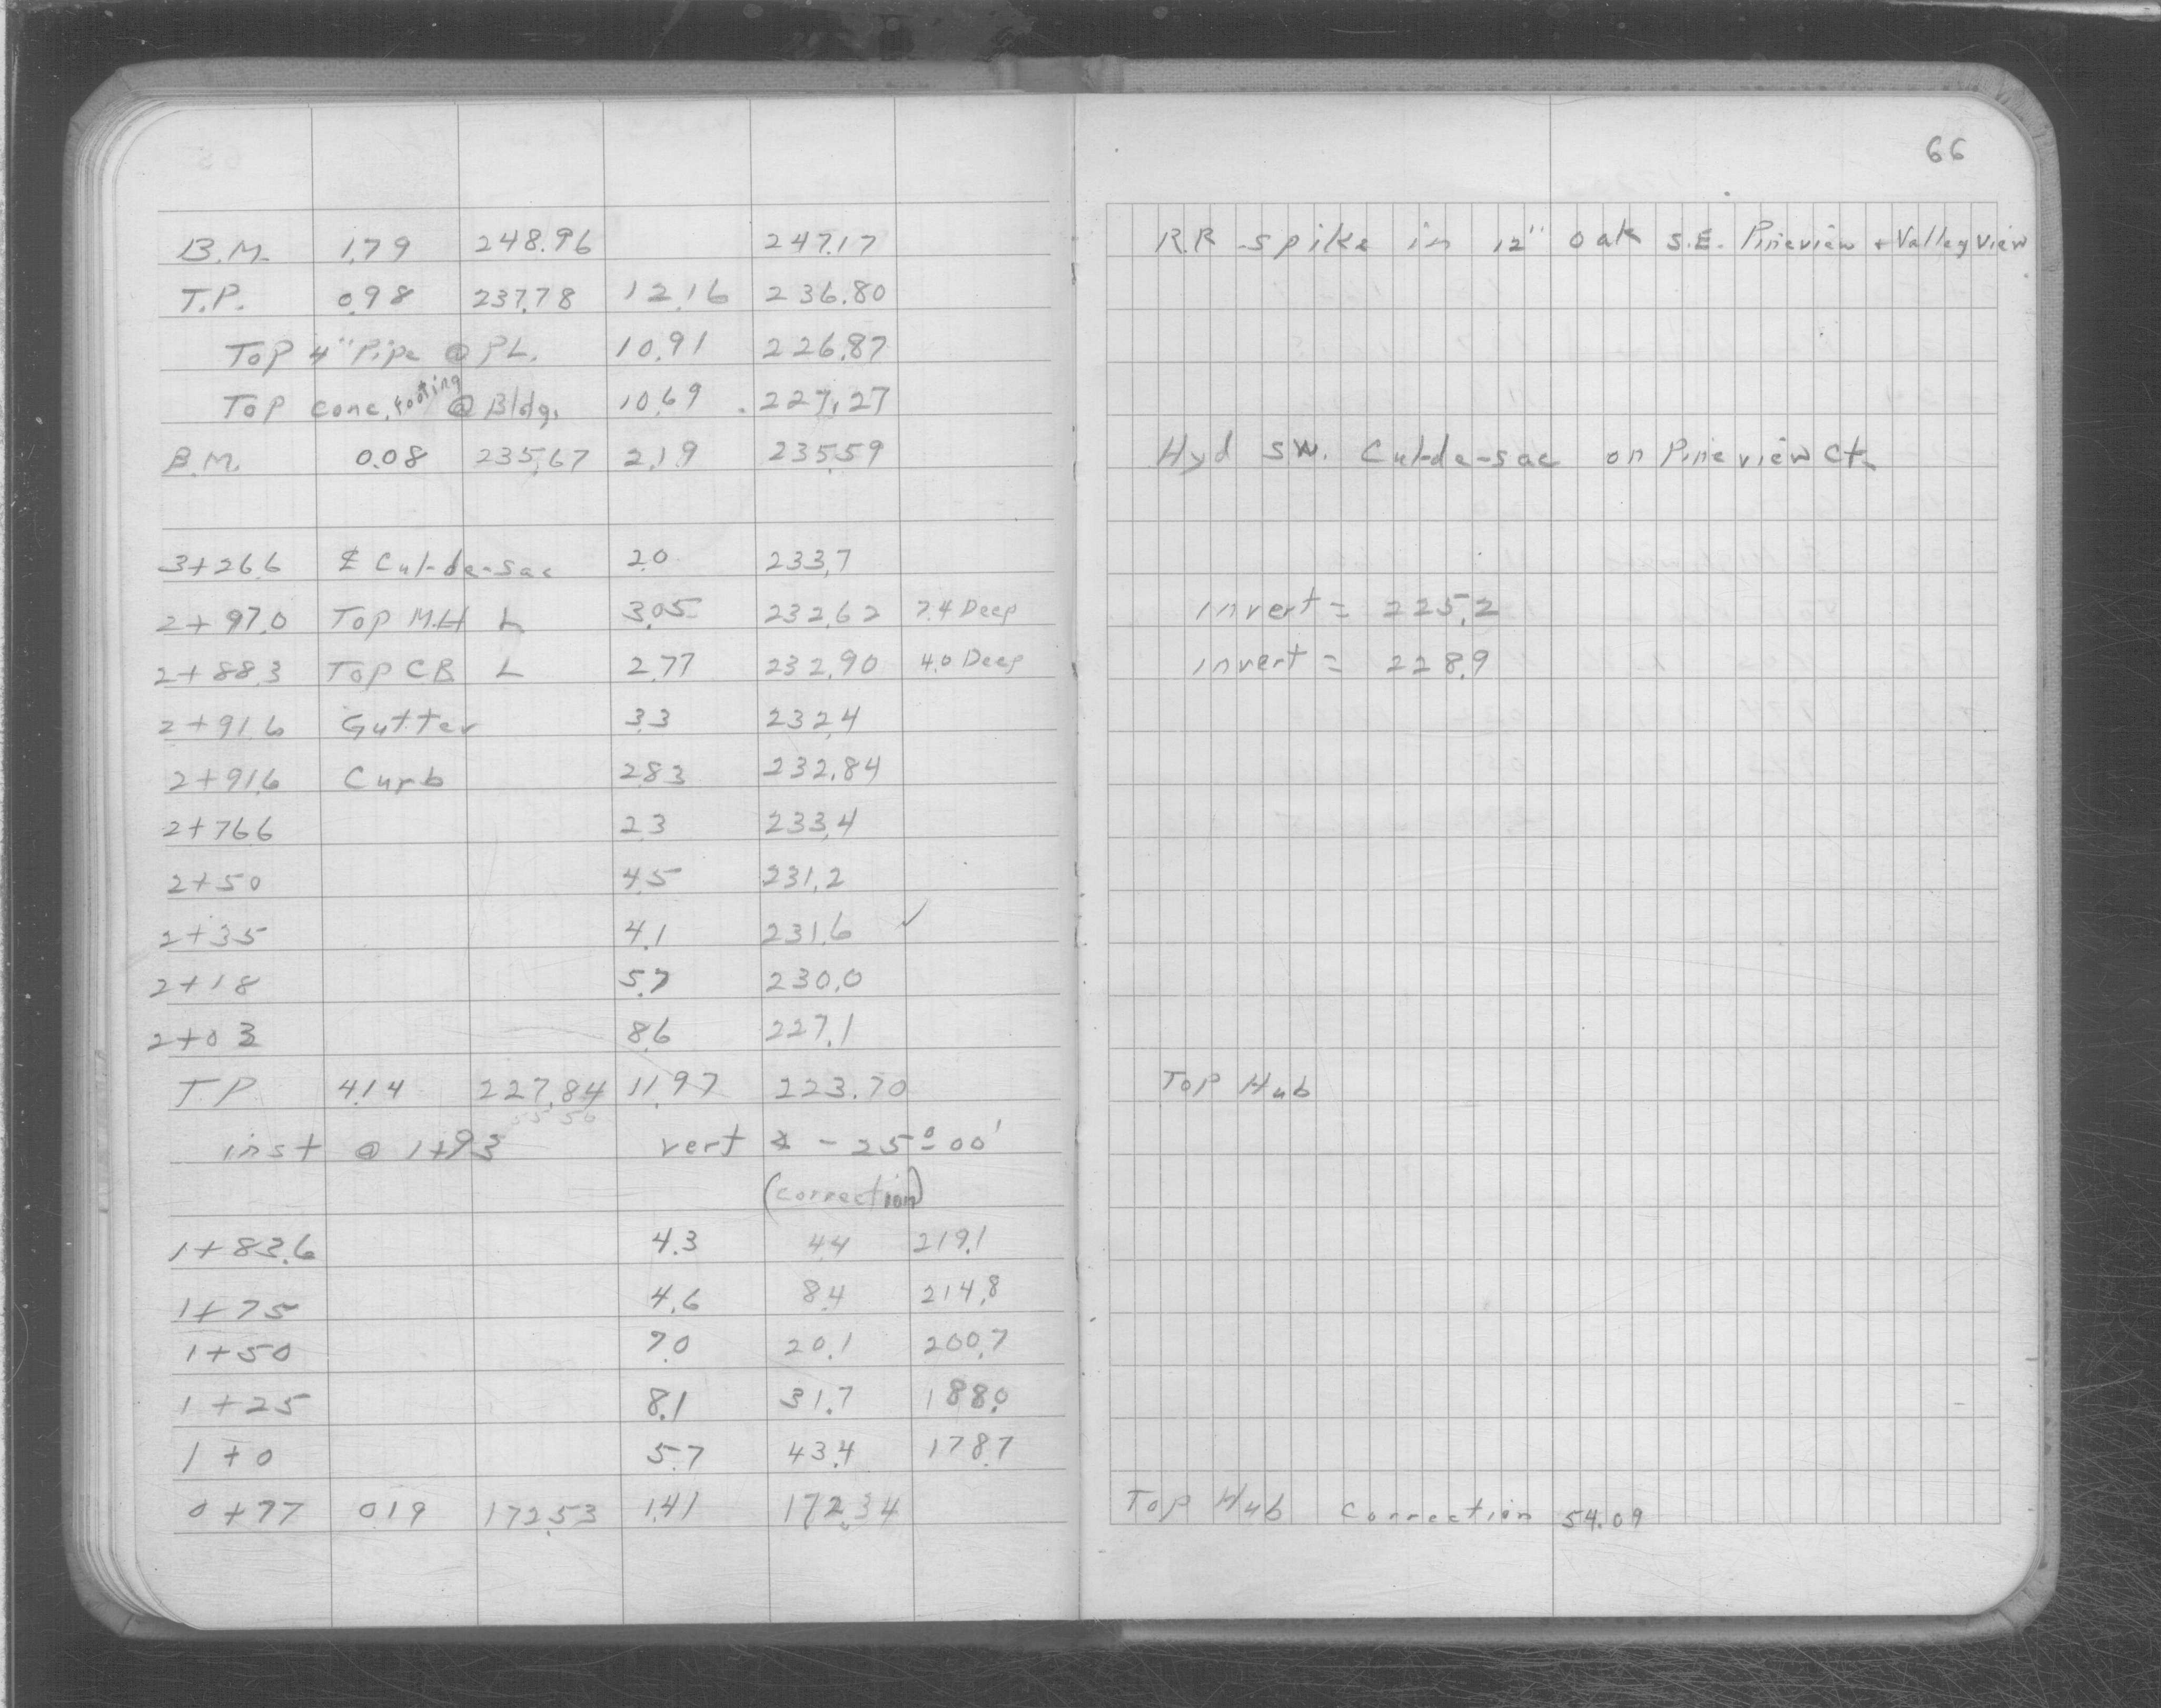 66
B.M. 1.79 248.96 247.17 R.R. spike in 12" oak S.E. Pineview + Valleyview
T.P. 0.98 237.78 12.16 236.80
Top 4" Pipe @ PL. 10.91 226.87
Top conc. footing @ Bldg. 10.69 227.27
B.M. 0.08 235.67 2.19 235.59 Hyd SW. Cul-de-sac on Pineview Ct.
3+26.6 ℄ Cul-de-sac 2.0 233.7
2+97.0 Top M.H L 3.05 232.62 7.4 Deep invert = 225.2
2+88.3 Top C.B. L 2.77 232.90 4.0 Deep invert = 228.9
2+91.6 Gutter 3.3 232.4
2+91.6 Curb 2.83 232.84
2+76.6 2.3 233.4
2+50 4.5 231.2
2+35 4.1 231.6 ✓
2+18 5.7 230.0
2+03 8.6 227.1
T.P. 4.14 227.84 11.97 223.70 Top Hub
inst @ 1+93 vert ∡ - 25°00'
(correction)
1+83.6 4.3 4.4 219.1
1+75 4.6 8.4 214.8
1+50 7.0 20.1 200.7
1+25 8.1 31.7 188.0
1+0 5.7 43.4 178.7
0+77 0.19 172.53 1.41 172.34 Top Hub Correction 54.09